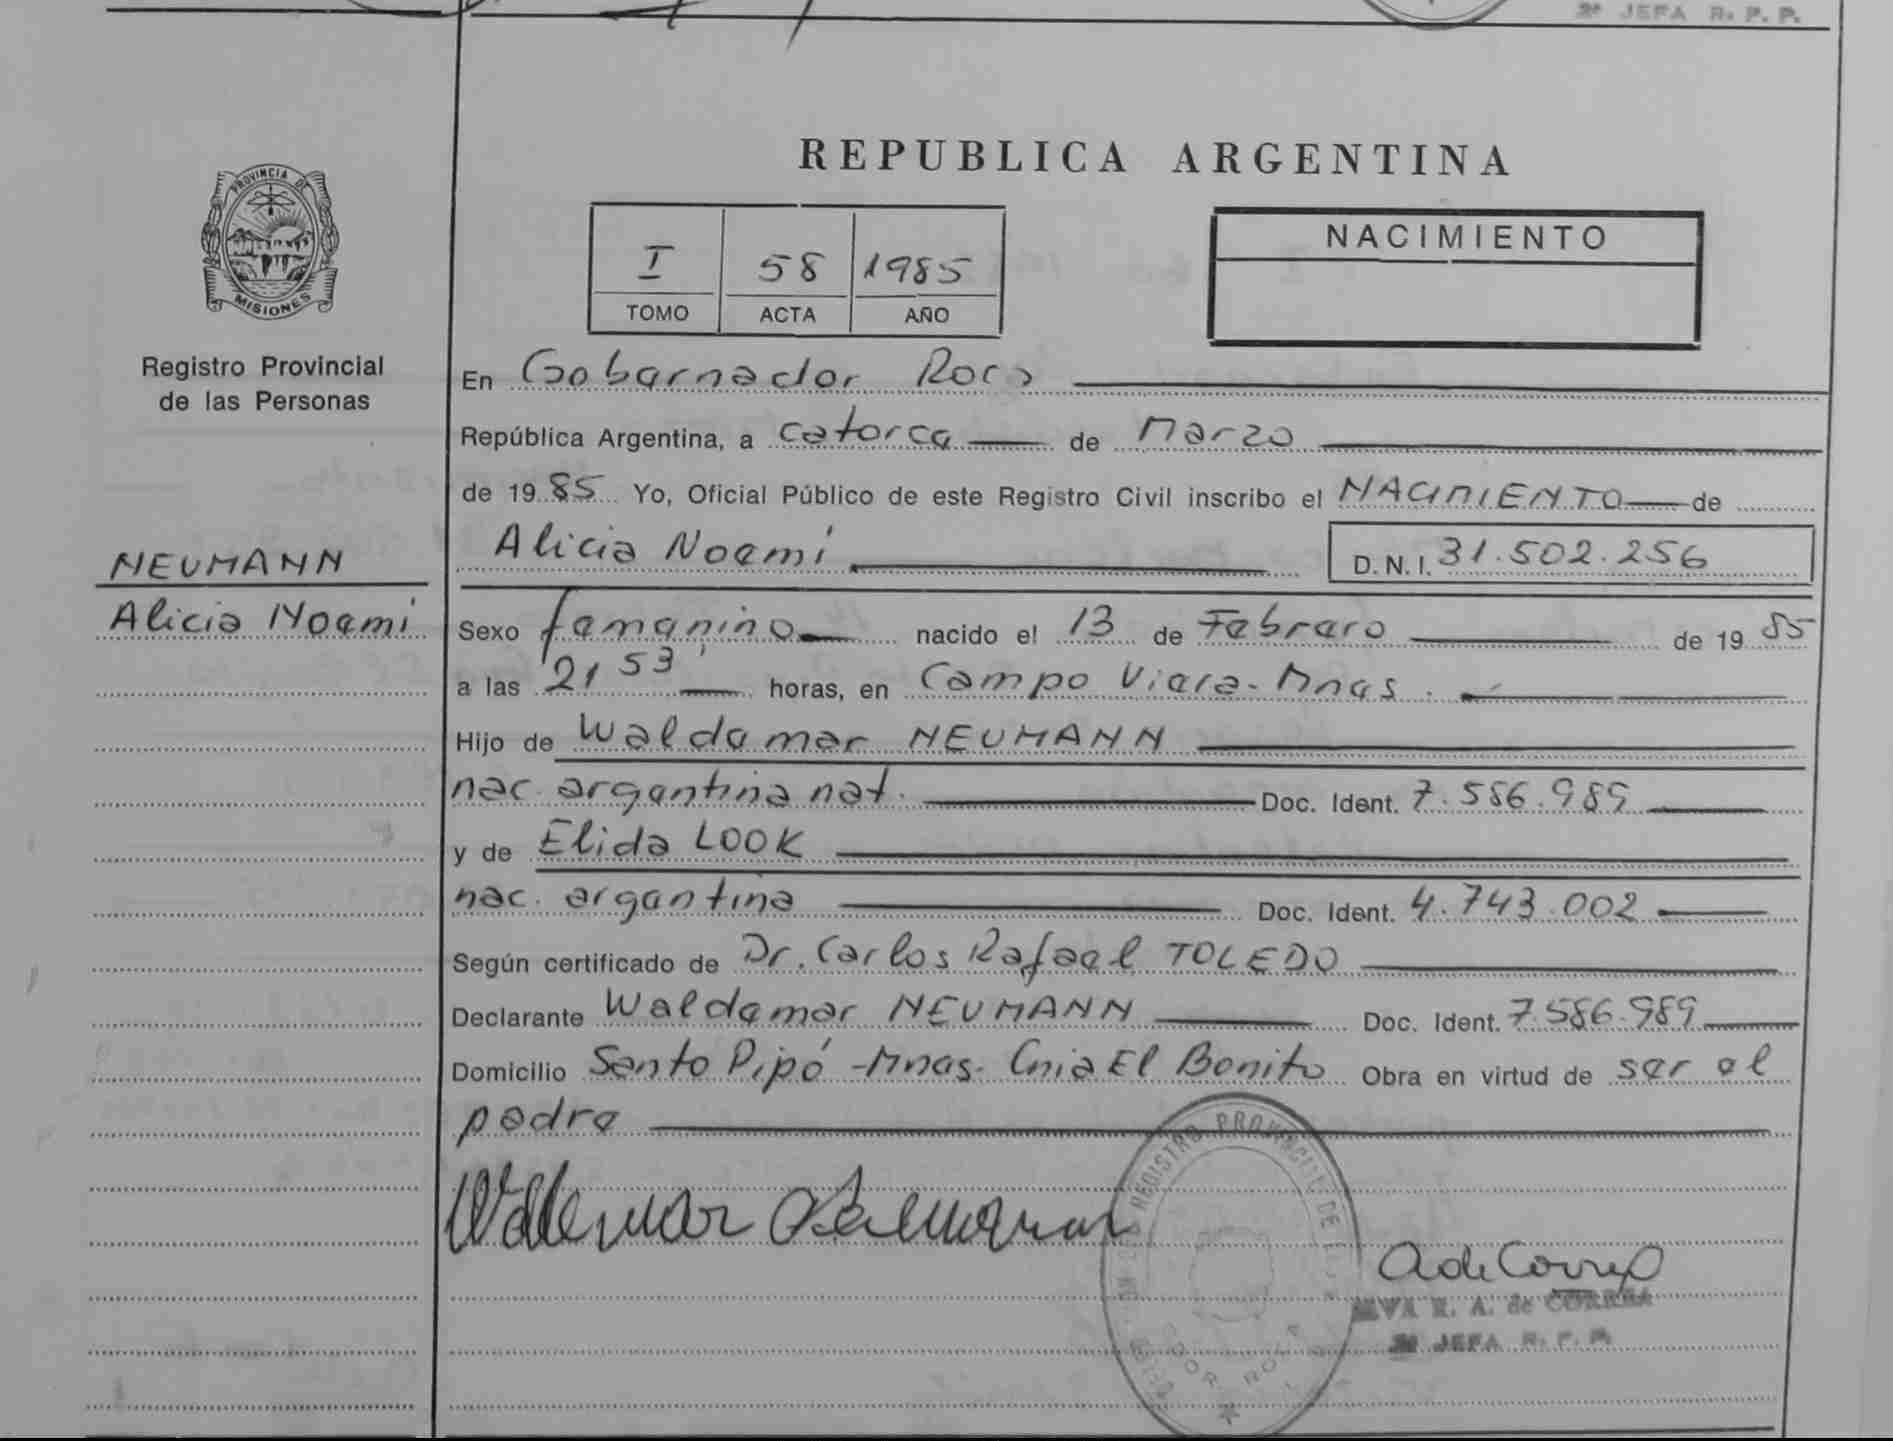 2ª JEFA R. P. P.
REPUBLICA ARGENTINA
PROVINCIA DE
MISIONES
Registro Provincial
de las Personas
I 58 1985
TOMO ACTA AÑO
NACIMIENTO
En Gobernador Roca
República Argentina, a catorce de Marzo
de 1985 Yo, Oficial Público de este Registro Civil inscribo el NACIMIENTO de
Alicia Noemí D.N.I. 31.502.256
NEUMANN
Alicia Noemí
Sexo femenino nacido el 13 de Febrero de 1985
a las 21 53' horas, en Campo Viera - Mnes.
Hijo de Waldemar NEUMANN
nac. argentina nat. Doc. Ident. 7.586.989
y de Elida LOOK
nac. argentina Doc. Ident. 4.743.002
Según certificado de Dr. Carlos Rafael TOLEDO
Declarante Waldemar NEUMANN Doc. Ident. 7.586.989
Domicilio Santo Pipó - Mnes. Cnia El Bonito Obra en virtud de ser el
padre
REGISTRO PROVINCIAL DE
A. de CORREA
2ª JEFA R. P. P.